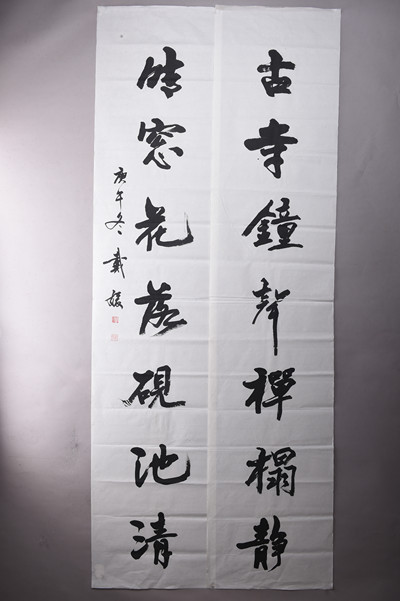 古寺鐘聲禪榻靜
晴窓花落硯池清
庚午冬戴